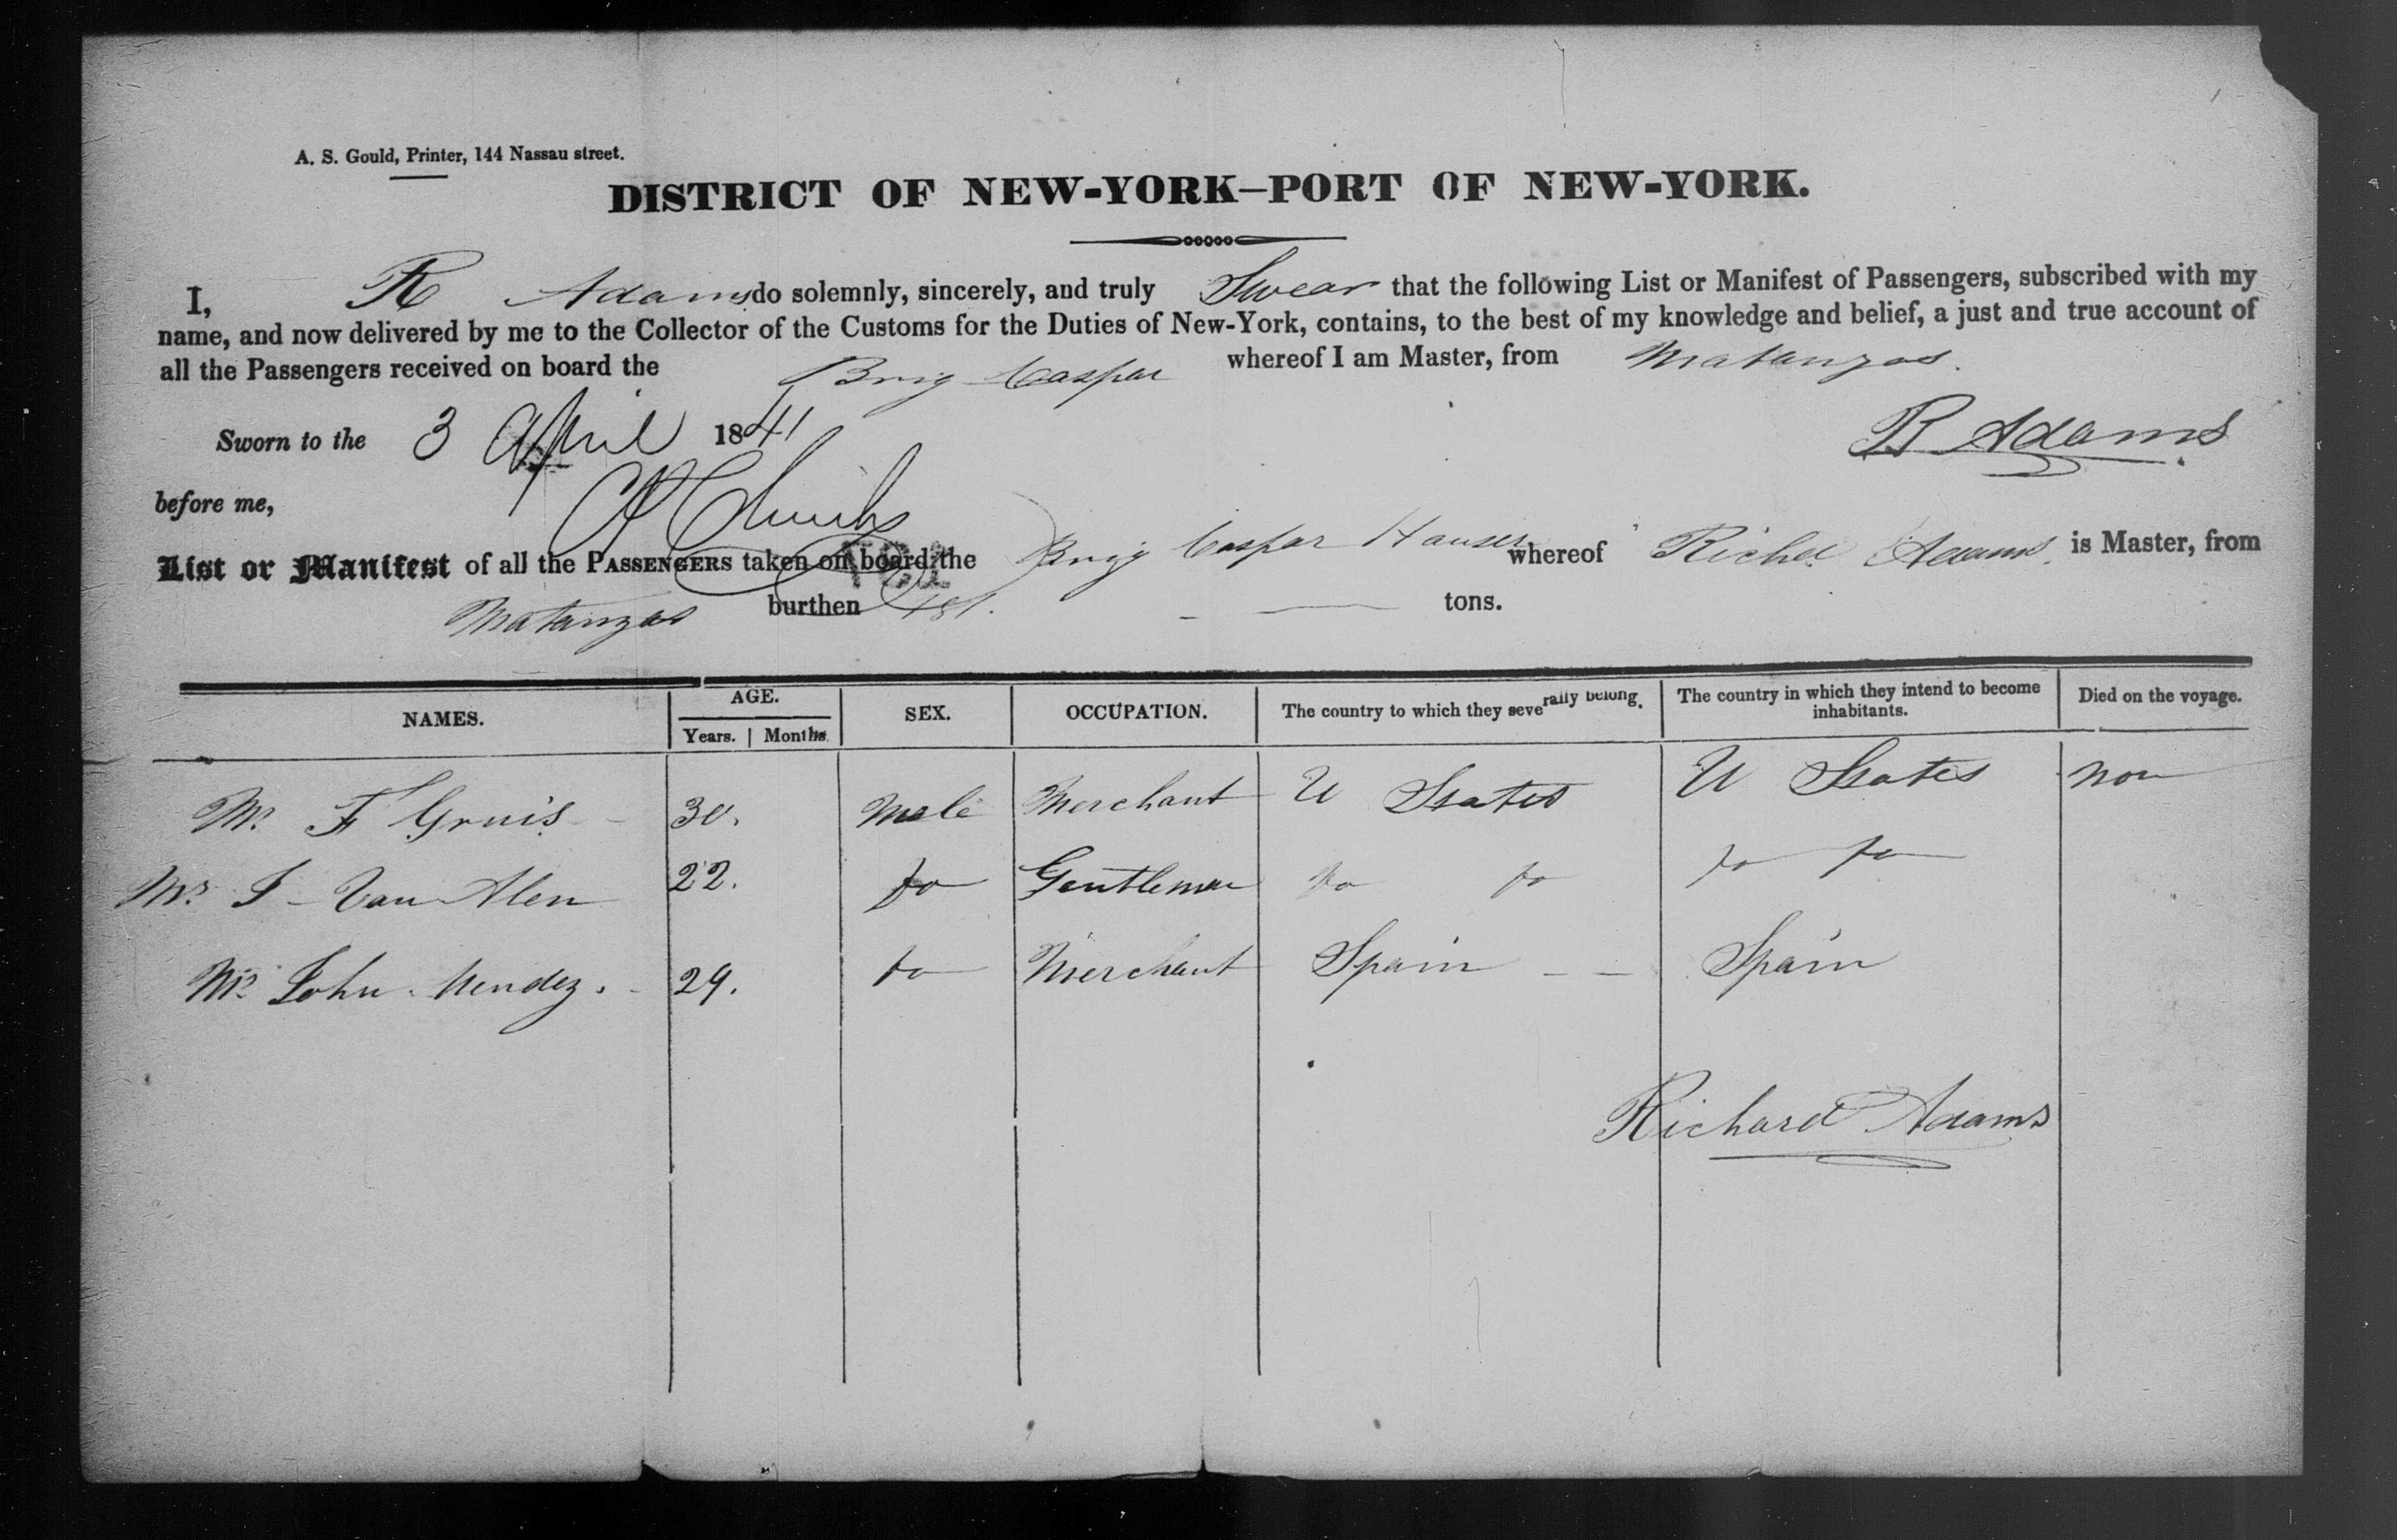 A. S. Gould, Printer, 144 Nassau street.
DISTRICT OF NEW-YORK—PORT OF NEW-YORK.
I, R Adams do solemnly, sincerely, and truly Swear that the following List or Manifest of Passengers, subscribed with my
name, and now delivered by me to the Collector of the Customs for the Duties of New-York, contains, to the best of my knowledge and belief, a just and true account of
all the Passengers received on board the Brig Caspar whereof I am Master, from Matanzas.
Sworn to the 3 April 1841
R Adams
before me,
List or Manifest of all the PASSENGERS taken on board the Brig Caspar Hauser whereof Richd Adams is Master, from
Matanzas burthen 181. tons.
NAMES. AGE. Years. | Months. SEX. OCCUPATION. The country to which they severally belong. The country in which they intend to become inhabitants. Died on the voyage.
Mr F Gruis 30. Male Merchant U States U States non
Mr J Van Alen 22. do Gentleman do do do do
Mr John Mendez. 29. do Merchant Spain Spain
Richard Adams